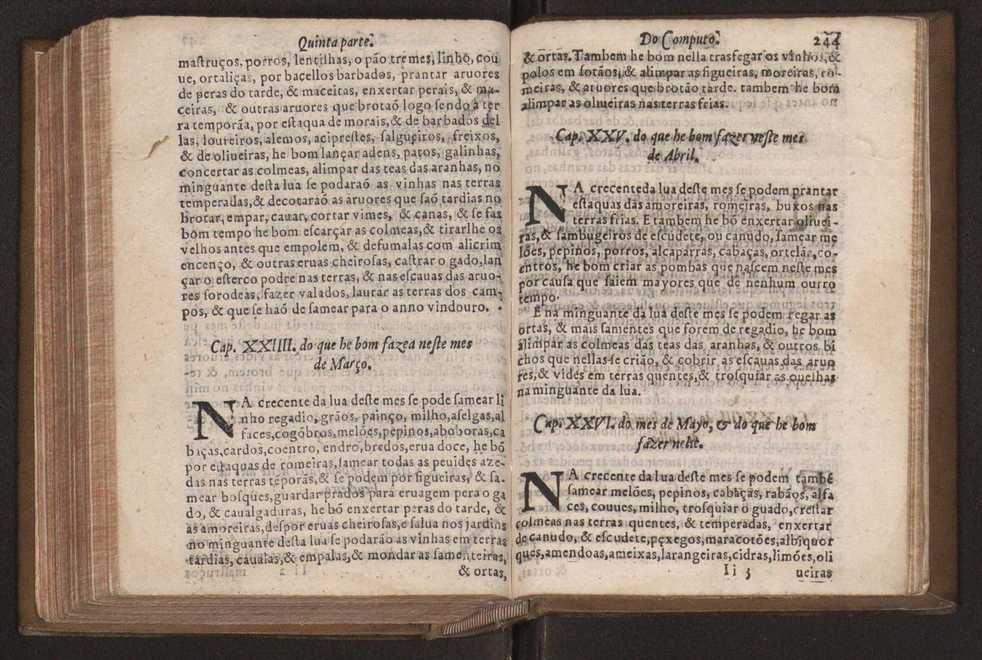 Quinta parte.
mastruços, porros, lentilhas, o pão tremes, linho, cou
ue, ortaliças, por bacellos barbados, prantar aruores
de peras do tarde, & maceitas, enxertar perais, & ma-
ceiras, & outras aruores que brotaõ logo sendo a ter
ra temporãa, por estaqua de morais, & de barbados del
las, loureiros, alemos, aciprestes, salgueiros, freixos,
& de oliueiras, he bom lançar adens, patos, galinhas,
concertar as colmeas, alimpar das teas das aranhas, no
minguante desta lua se podaraõ as vinhas nas terras
temperadas, & decotaraõ as aruores que saõ tardias no
brotar, empar, cauar, cortar vimes, & canas, & se faz
bom tempo he bom escarçar as colmeas, & tirarlhe os
velhos antes que empolem, & defumalas com alicrim
encenço, & outras eruas cheirosas, castrar o gado, lan
çar o esterco podre nas terras, & nas escauas das aruo-
res forodeas, fazer valados, laurar as terras dos cam-
pos, & que se haõ de samear para o anno vindouro.
Cap. XXIIII. do que he bom fazea neste mes
de Março.
NA crecente da lua deste mes se pode samear li
nho regadio, grãos, painço, milho, aselgas, al
faces, cogõbros, melões, pepinos, aboboras, ca
baças, cardos, coentro, endro, bredos, erua doce, he bõ
por estaquas de romeiras, samear todas as peuides aze-
das nas terras tẽporãs, & se podem por figueiras, & sa-
mear bosques, guardar prados para eruagem pera o ga
do, & caualgaduras, he bõ enxertar peras do tarde, &
as amoreiras, despor eruas cheirosas, e salua nos jardins
no minguante desta lua se podarão as vinhas em terras
tardias, caualas, & empalas, & mondar as samenteiras,
& ortas,
Do Computo. 244
& ortas. Tambem he bom nella trasfegar os vinhos, &
polos em sotãos, & alimpar as figueiras, moreiras, ro-
meiras, & aruores que brotão tarde. tambem he bom
alimpar as oliueiras nas terras frias.
Cap. XXV. do que he bom fazer neste mes
de Abril.
NA crecente da lua deste mes se podem prantar
estaquas das amoreiras, romeiras, buxos nas
terras frias. E tambem he bõ enxertar oliuei-
ras, & sambugeiros de escudete, ou canudo, samear me
lões, pepinos, porros, alcaparras, cabaças, ortelãs, co-
entros, he bom criar as pombas que nascem neste mes
por causa que saiem mayores que de nenhum outro
tempo.
E na minguante da lua deste mes se podem regar as
ortas, & mais samentes que forem de regadio, he bom
alimpar as colmeas das teas das aranhas, & outros bi
chos que nellas se crião, & cobrir as escauas das aruo
res, & vides em terras quentes, & trosquiar as ouelhas
na minguante da lua.
Cap. XXVI. do mes de Mayo, & do que he bom
fazer nelle.
NA crecente da lua deste mes se podem tambẽ
samear melões, pepinos, cabaças, rabãos, alfa
ces, couues, milho, trosquiar o guado, crestar
colmeas nas terras quentes, & temperadas, enxertar
de canudo, & escudete, pexegos, maracotões, albiquor
ques, amendoas, ameixas, larangeiras, cidras, limões, oli
Ii 3 ueiras